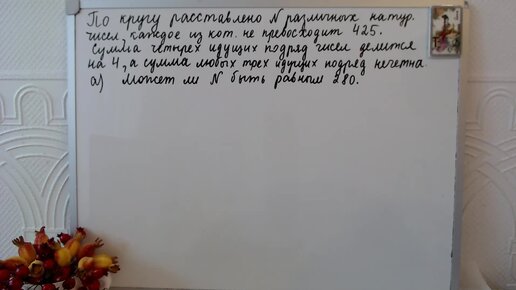 По кругу расставлено N различных натур.
чисел, каждое из кот. не превосходит 425.
Сумма четырех идущих подряд чисел делится
на 4, а сумма любых трех идущих подряд нечетна.
а) Может ли N быть равным 280.